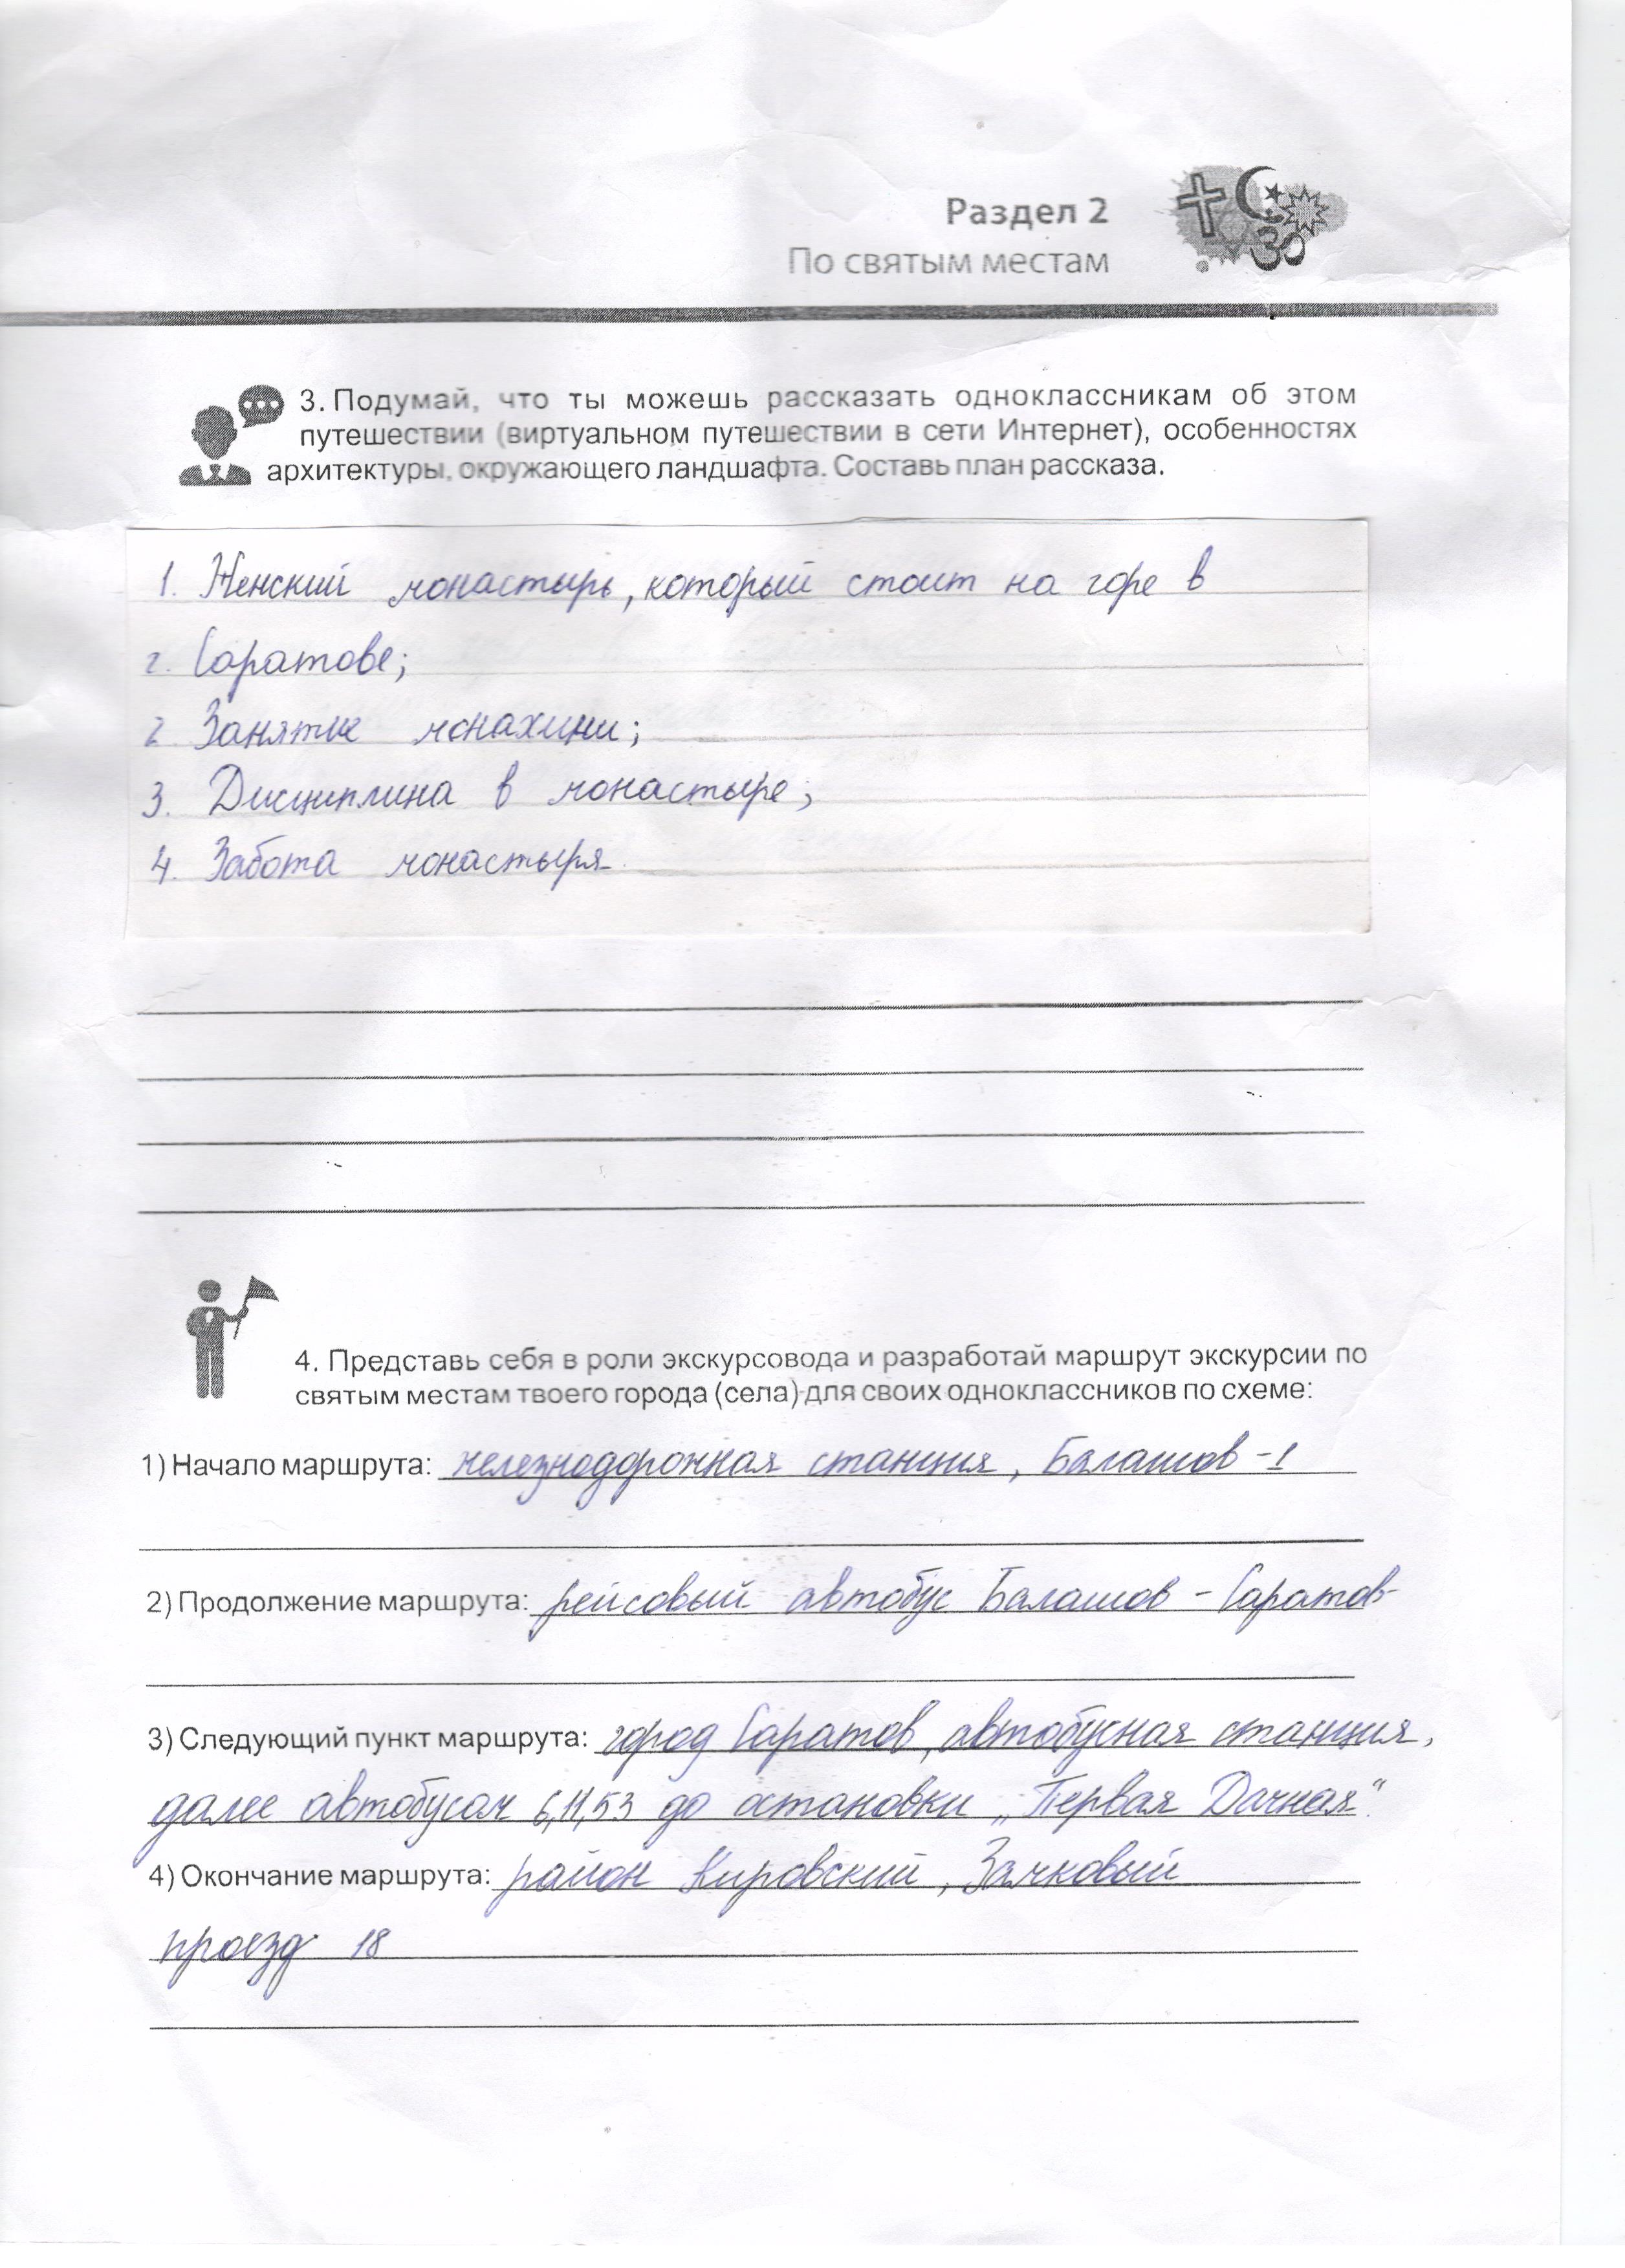 Раздел 2
По святым местам
3. Подумай, что ты можешь рассказать одноклассникам об этом
путешествии (виртуальном путешествии в сети Интернет), особенностях
архитектуры, окружающего ландшафта. Составь план рассказа.
1. Женский монастырь, который стоит на горе в
г. Саратове;
2. Занятие монахини;
3. Дисциплина в монастыре;
4. Забота монастыря
4. Представь себя в роли экскурсовода и разработай маршрут экскурсии по
святым местам твоего города (села) для своих одноклассников по схеме:
1) Начало маршрута: железнодорожная станция, Балашов-1
2) Продолжение маршрута: рейсовый автобус Балашов - Саратов
3) Следующий пункт маршрута: город Саратов, автобусная станция,
далее автобусом 6,11,53 до остановки „Первая Дачная“.
4) Окончание маршрута: район Кировский, Замковый
проезд 18